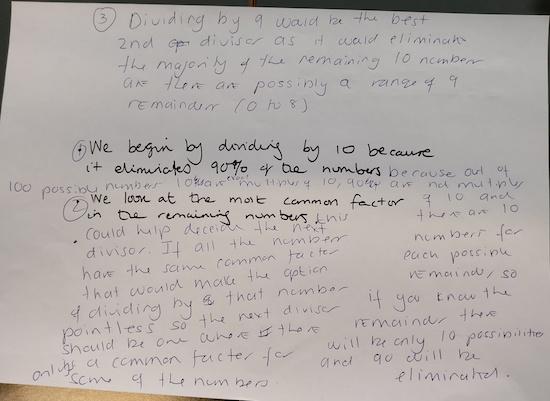 ③ Dividing by 9 would be the best
2nd divisor as it would eliminate
the majority of the remaining 10 numbers
are there are possibly a range of 9
remainders (0 to 8)
① We begin by dividing by 10 because
it eliminates 90% of the numbers because out of
100 possible numbers 10 are multiples of 10, 90 are not multiples
of 10 and
there are 10
numbers for
each possible
remainder, so
if you know the
remainder there
will be only 10 possibilities
and 90 will be
eliminated.
② We look at the most common factor
in the remaining numbers, this
could help decide the next
divisor. If all the numbers
have the same common factor
that would make the option
of dividing by that number
pointless so the next divisor
should be one where there
only is a common factor for
some of the numbers.